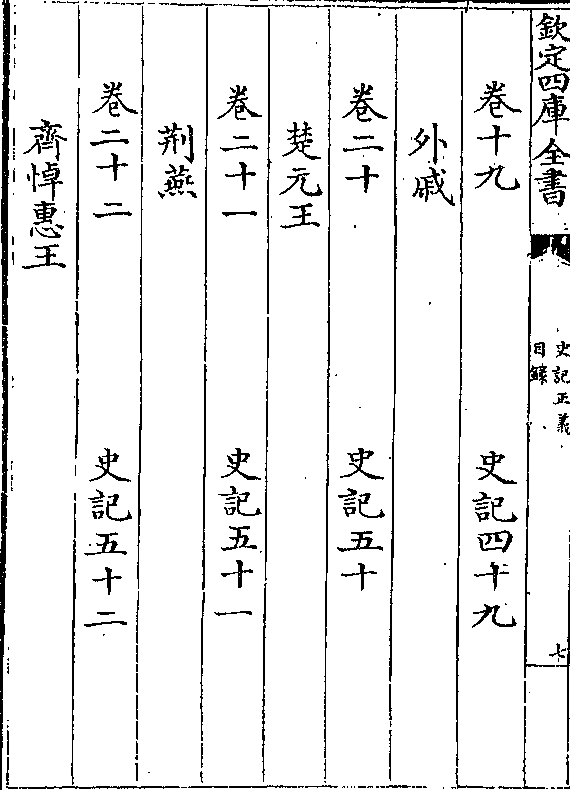 欽定四庫全書
史記正義
目錄
七
卷十九 史記四十九
外戚
卷二十 史記五十
楚元王
卷二十一 史記五十一
荆燕
卷二十二 史記五十二
齊悼惠王